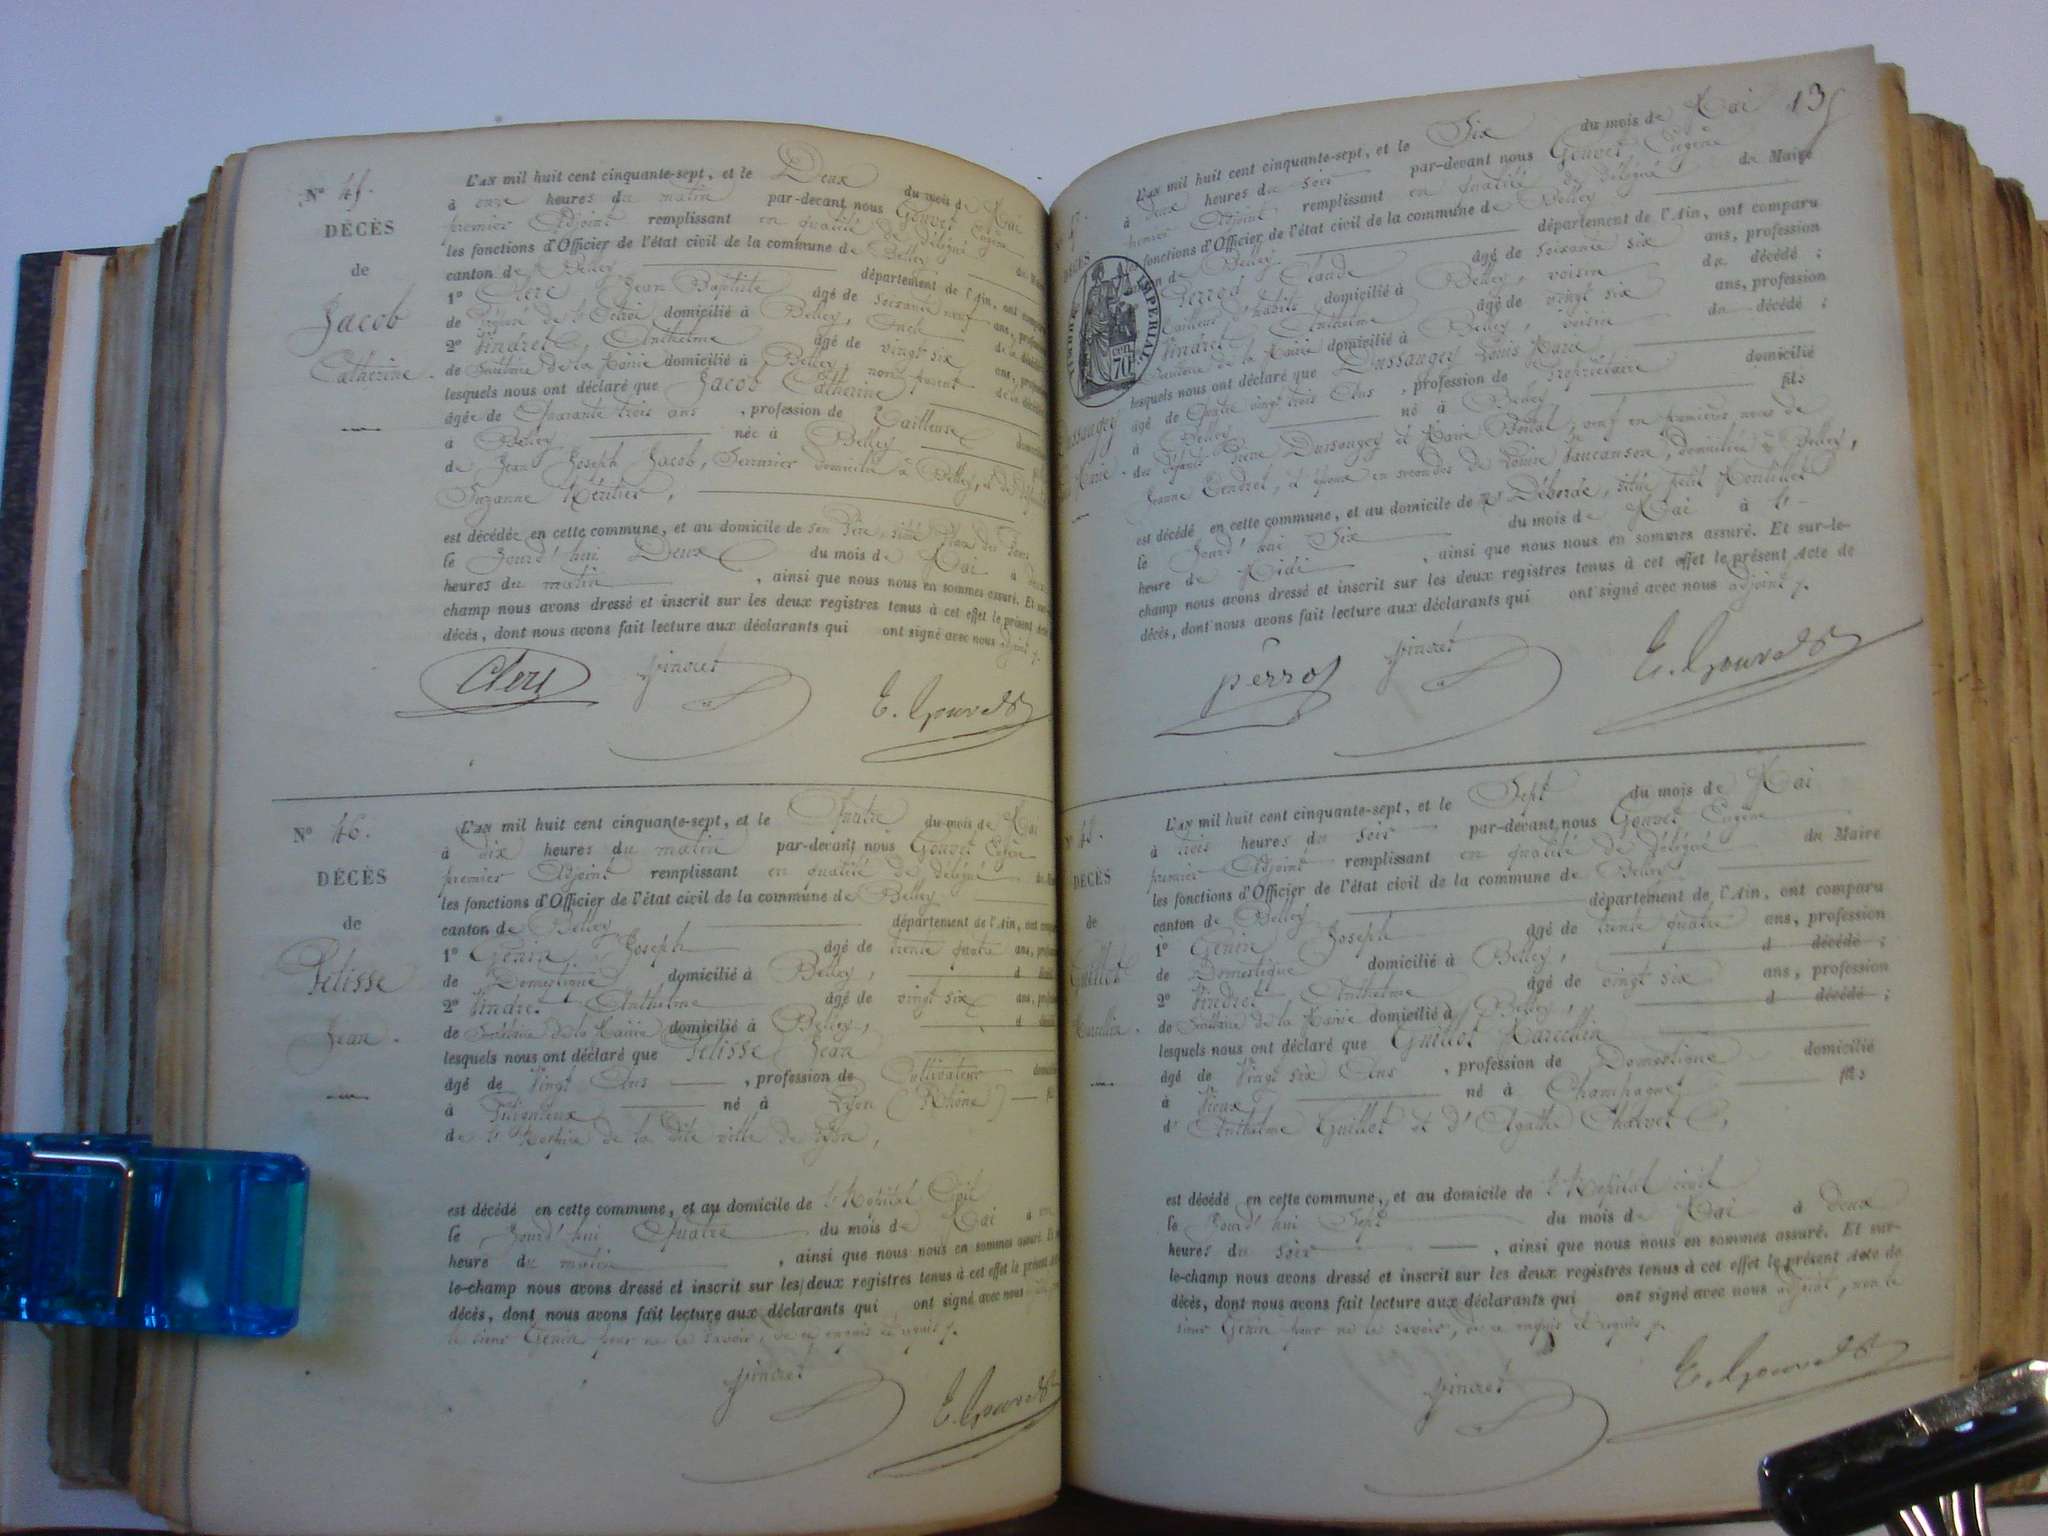 N° 45.
DÉCÈS
de
Jacob
Catherine.
L'AN mil huit cent cinquante-sept, et le Deux du mois de Mai
à onze heures du matin par-devant nous Gouvet Eugène
premier Adjoint remplissant en qualité de Délégué du Maire
les fonctions d'Officier de l'état civil de la commune de Belley
canton de Belley département de l'Ain, ont comparu
1° Clerc Jean Baptiste âgé de soixante neuf ans, profession
de l'Octroi domicilié à Belley, de la décédée
2° Vindret Anthelme âgé de vingt six ans, profession
de Secrétaire de la Mairie domicilié à Belley, non parent de la décédée
lesquels nous ont déclaré que Jacob Catherine
âgée de Quarante trois ans , profession de Tailleuse
à Belley née à Belley
de Jean Joseph Jacob, Serrurier domicilié à Belley, et de
Suzanne Héritier,
est décédée en cette commune, et au domicile de son Père, situé
le Jourd'hui Deux du mois de Mai à
heures du matin , ainsi que nous nous en sommes assuré. Et sur-le-
champ nous avons dressé et inscrit sur les deux registres tenus à cet effet le présent Acte
décès, dont nous avons fait lecture aux déclarants qui ont signé avec nous adjoint /.
Clerc Vindret E. Gouvet
N° 46.
DÉCÈS
de
Pelisse
Jean.
L'AN mil huit cent cinquante-sept, et le Quatre du mois de Mai
à dix heures du matin par-devant nous Gouvet Eugène
premier Adjoint remplissant en qualité de délégué
les fonctions d'Officier de l'état civil de la commune de Belley
canton de Belley département de l'Ain, ont
1° Genin Joseph âgé de trente quatre ans,
de Domestique domicilié à Belley, d
2° Vindret Anthelme âgé de vingt six ans,
de Secrétaire de la Mairie domicilié à Belley, d
lesquels nous ont déclaré que Pelisse Jean
âgé de Vingt Ans , profession de Cultivateur
à Pugnieux né à Lyon (Rhône)
de l'Hospice de la dite ville de Lyon,
est décédé en cette commune, et au domicile de l'Hôpital Civil
le Jourd'hui Quatre du mois de Mai à
heure du matin , ainsi que nous nous en sommes assuré. Et
le-champ nous avons dressé et inscrit sur les deux registres tenus à cet effet le présent
décès, dont nous avons fait lecture aux déclarants qui ont signé avec nous
le sieur Genin pour ne le savoir, de ce enquis et requis /.
Vindret E. Gouvet
13
L'AN mil huit cent cinquante-sept, et le Six du mois de Mai
à deux heures du soir par-devant nous Gouvet Eugène
premier Adjoint remplissant en qualité de délégué du Maire
les fonctions d'Officier de l'état civil de la commune de Belley
de Belley département de l'Ain, ont comparu
Perrod Claude âgé de soixante six ans, profession
Tailleur d'habits domicilié à Belley, voisin du décédé ;
Vindret Anthelme âgé de vingt six ans, profession
Secrétaire de la Mairie domicilié à Belley, voisin du décédé ;
TIMBRE IMPÉRIAL
70 cen
lesquels nous ont déclaré que Dussaugey Louis Marie
âgé de Quatre vingt trois Ans , profession de Propriétaire domicilié
à Belley né à Belley fils
des défunts Pierre Dussaugey et Marie Bonat, veuf en premières noces de
Jeanne Tendret, et époux en secondes de Louise Vaucanson, domiciliée à Belley,
est décédé en cette commune, et au domicile de Mr Déborde, situé petit Montillet
le Jourd'hui Six du mois de Mai à l'-
heure de Midi , ainsi que nous nous en sommes assuré. Et sur-le-
champ nous avons dressé et inscrit sur les deux registres tenus à cet effet le présent Acte de
décès, dont nous avons fait lecture aux déclarants qui ont signé avec nous adjoint /.
perrod Vindret E. Gouvet
48.
DÉCÈS
de
Guillot
Marcellin.
L'AN mil huit cent cinquante-sept, et le Sept du mois de Mai
à trois heures du soir par-devant nous Gouvet Eugène
premier Adjoint remplissant en qualité de délégué du Maire
les fonctions d'Officier de l'état civil de la commune de Belley
canton de Belley département de l'Ain, ont comparu
1° Genin Joseph âgé de trente quatre ans, profession
de Domestique domicilié à Belley, d décédé ;
2° Vindret Anthelme âgé de vingt six ans, profession
de Secrétaire de la Mairie domicilié à Belley, d décédé ;
lesquels nous ont déclaré que Guillot Marcellin
âgé de Vingt six Ans , profession de Domestique domicilié
à Vieux né à Champagne fils
d' Anthelme Guillot et d'Agathe Charvet,
est décédé en cette commune, et au domicile de l'Hôpital civil
le Jourd'hui Sept du mois de Mai à deux
heures du soir , ainsi que nous nous en sommes assuré. Et sur-
le-champ nous avons dressé et inscrit sur les deux registres tenus à cet effet le présent Acte de
décès, dont nous avons fait lecture aux déclarants qui ont signé avec nous adjoint, non le
sieur Genin pour ne le savoir, de ce enquis et requis /.
Vindret E. Gouvet